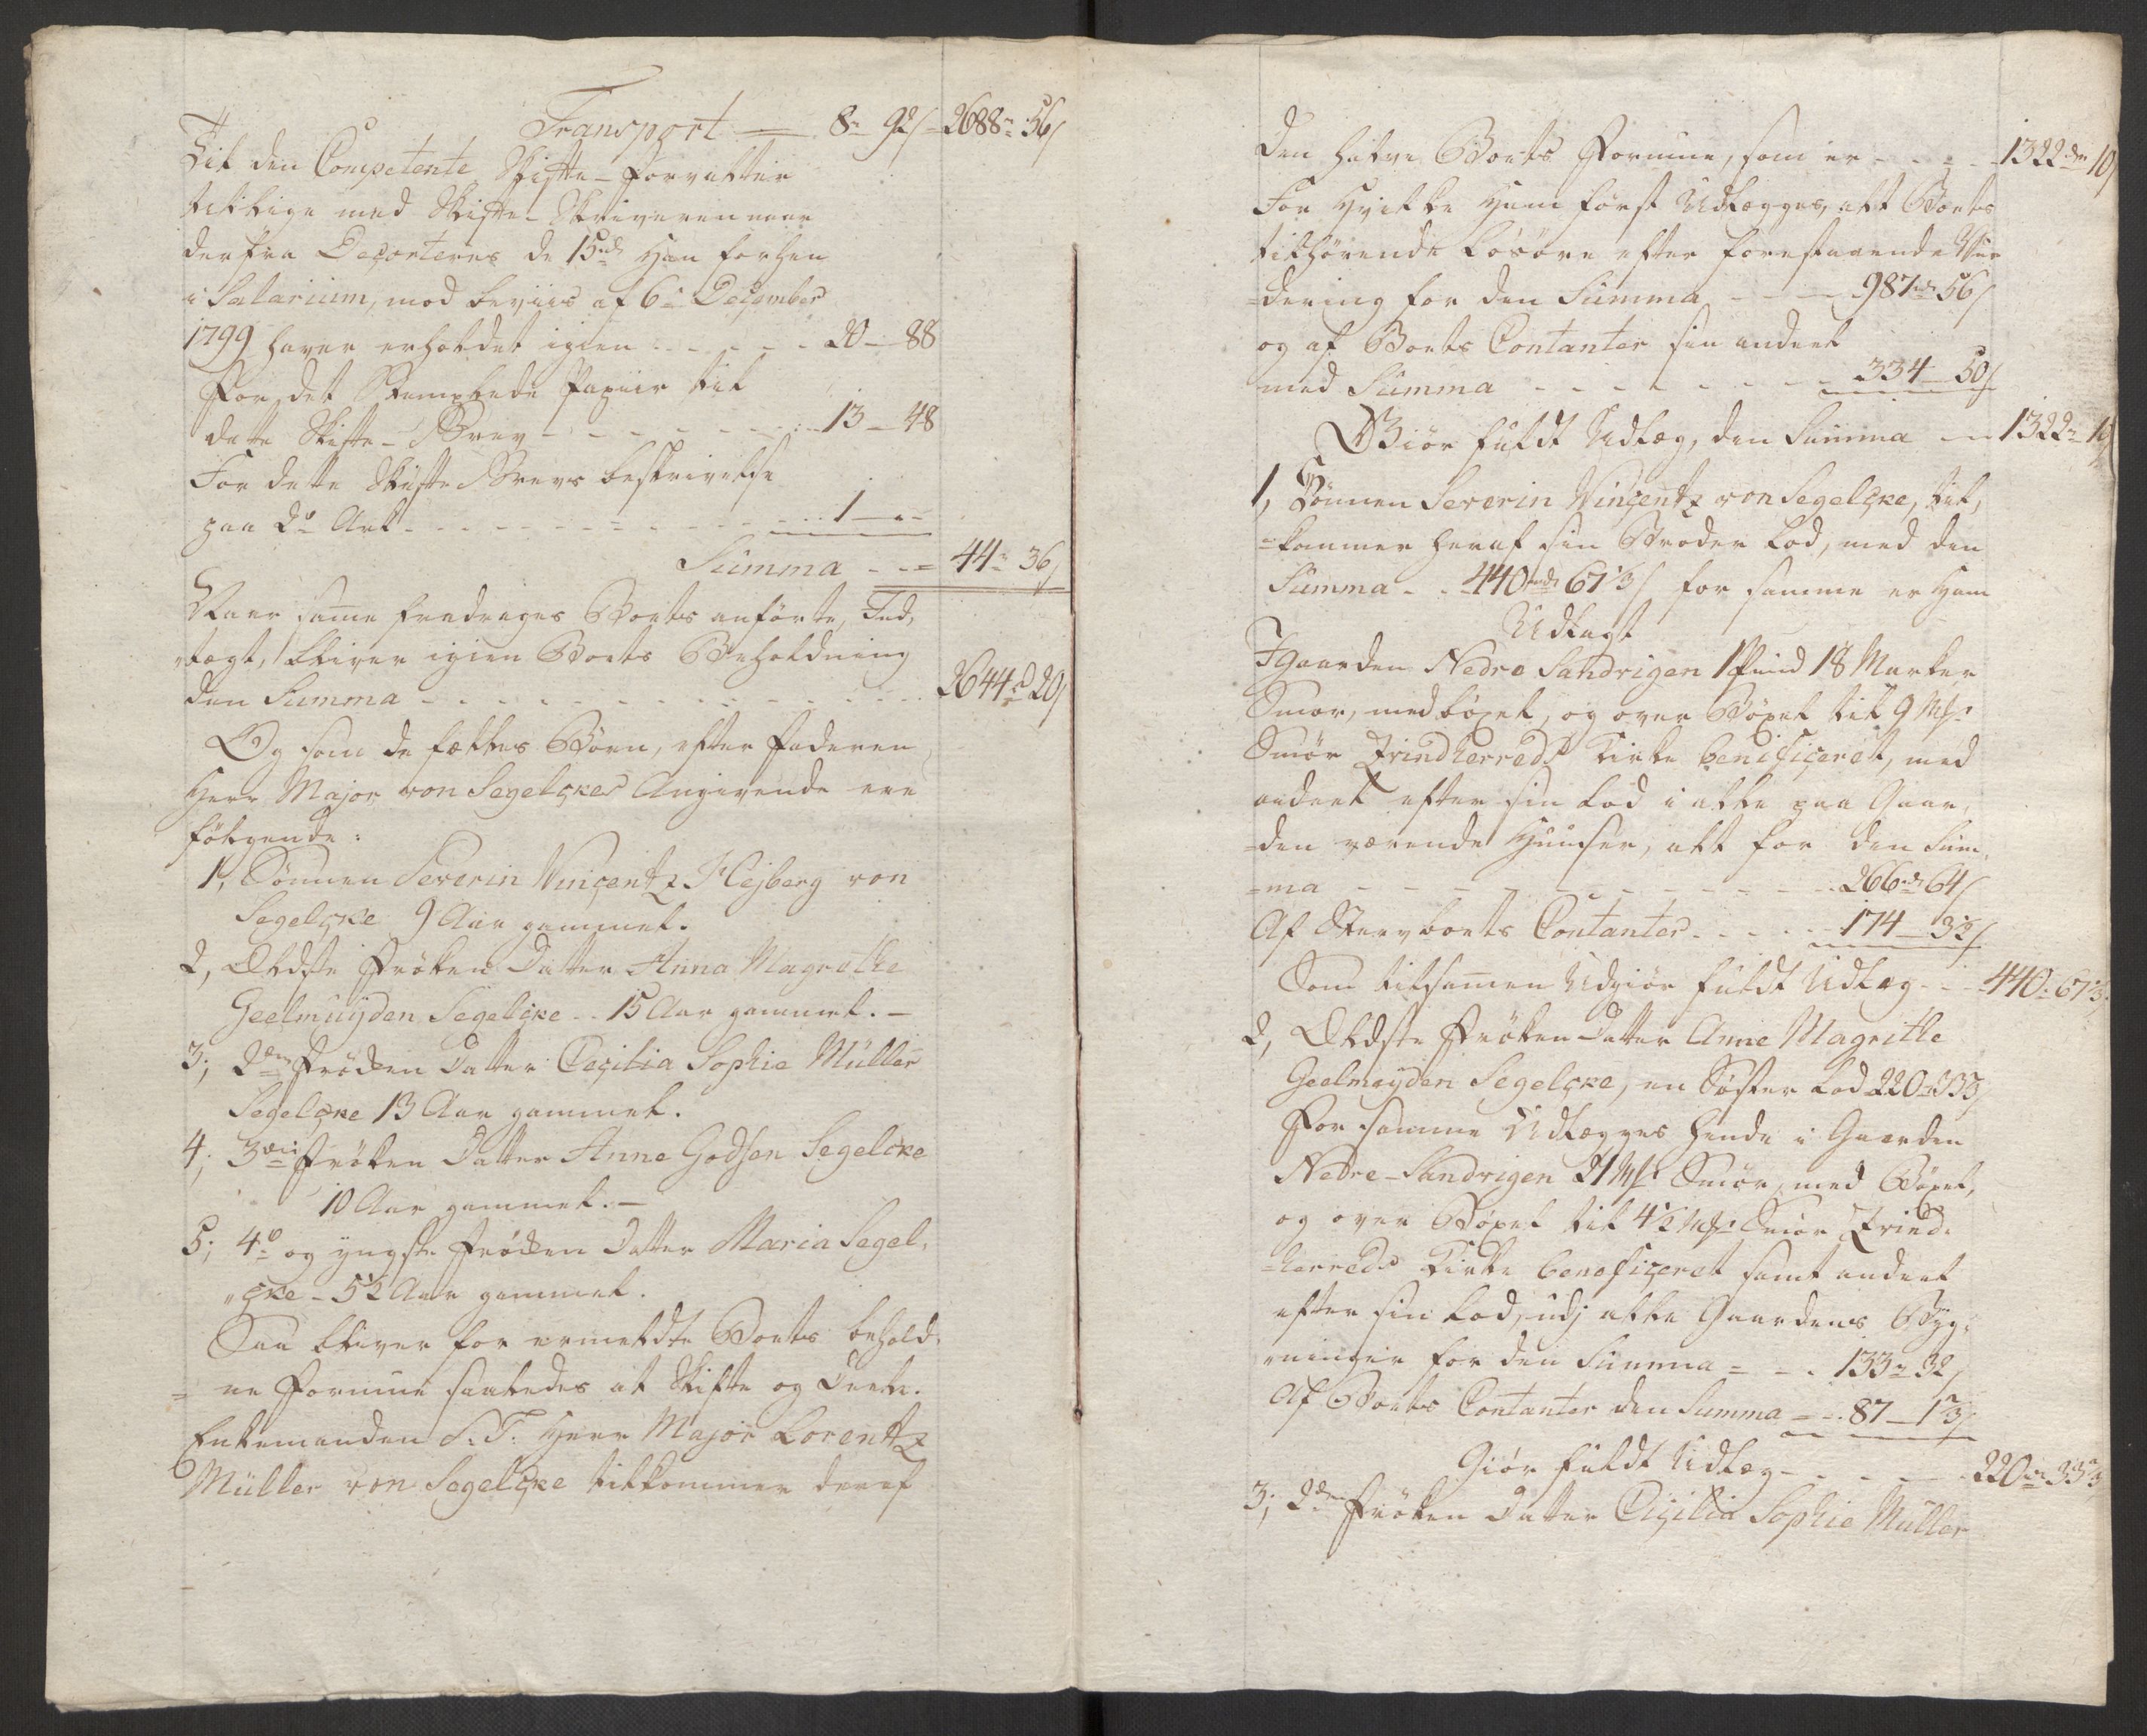 Transport — 8 „ 92 s 2688 „ 56 s
Til den Competente Skifte-Forvalter
tillige med Skifte-Skriveren naar
derfra Decorteres de 15 rd Han forhen
i Salarium, mod beviis af 6te December
1799 haver erholdet igien - - - - 20 — 88
For det Stemplede Papiir til
dette Skifte-Brev - - - - - - 13 — 48
For dette Skifte Brevs beskrivelse
paa 2de Ark - - - - - - - - - 1 — „ —
Summa - - = 44 „ 36 s
Naar samme fradrages Boets anførte, Ind,
„tægt, bliver igien Boets Beholdning
den Summa - - - - - - - - - - 2644 rd 20 s
Og som de fælles Børn, efter Faderen
Herr Major von Segelckes Angivende ere
følgende:
1, Sönnen Severin Vincentz Hejberg von
Segelcke 9 Aar gammel.
2, Ældste Frøken Datter Anna Magrethe
Geelmuyden Segelcke - - 15 Aar gammel. —
3; 2den Frøken Datter Cecilia Sophie Müller
Segelcke 13 Aar gammel.
4; 3die Frøken Datter Anne Godsen Segelcke
10 Aar gammel. —
5; 4de og yngste Frøken Datter Maria Segel,
„cke - 5½ Aar gammel.
Saa bliver for ermeldte Boets behold,
= ne Formue saaledes at Skifte og Deele.
Enkemanden S. T. Herr Major Lorentz
Müller von Segelcke tilkommer deraf
den halve Boets Formue, som er - - - - 1322 rd 10 s
For Hvilke Ham først Udlægges, alt Boets
tilhørende Løsøre efter forestaaende Vur
=dering for den Summa - - - 987 rd 56 s
og af Boets Contanter sin andeel
med Summa - - - - - - - - 334 — 50 s
Giør fuldt Udlæg, den Summa - - 1322 „ 10 s
1, Sönnen Severin Vincentz von Segelcke, til,
=kommer heraf sin Broder Lod, med den
Summa - - 440 rd 67⅓ s for samme er Ham
Udlagt
I Gaarden Nedre Sandvigen 1 Pund 18 Marker
Smør, med bøxel, og over Bøxel til 9 Mkr
Smør Qvindherreds Kirke beneficeret, med
andeel efter sin Lod i alle paa Gaar,
=den værende Huuser, alt for den Sum,
=ma - - - - - - - - - - - 266 rd 64 s
Af Stervboets Contanter - - - - 174 — 3⅓ s
Som tilsammen Udgiør fuldt Udlæg - - 440 „ 67⅓
2, Ældste Frøken Datter Anne Magrithe
Geelmeyden Segelcke, en Søster Lod 220 „ 33⅔ s
For samme Udlægges hende i Gaarden
Nedre-Sandvigen 21 Mkr Smør, med Bøxel,
og over Bøxel til 4½ Mkr Smør Qvind,
=herreds Kirke beneficeret samt andeel
efter sin Lod, udj alle Gaardens Byg,
„ninger for den Summa = - - 133 „ 32 s
Af Boets Contanter den Summa - - 87 — 1⅔ s
Giør fuldt Udlæg - - - - - 220 rd 33⅔
3; 2den Frøken Datter Cicilia Sophie Müller